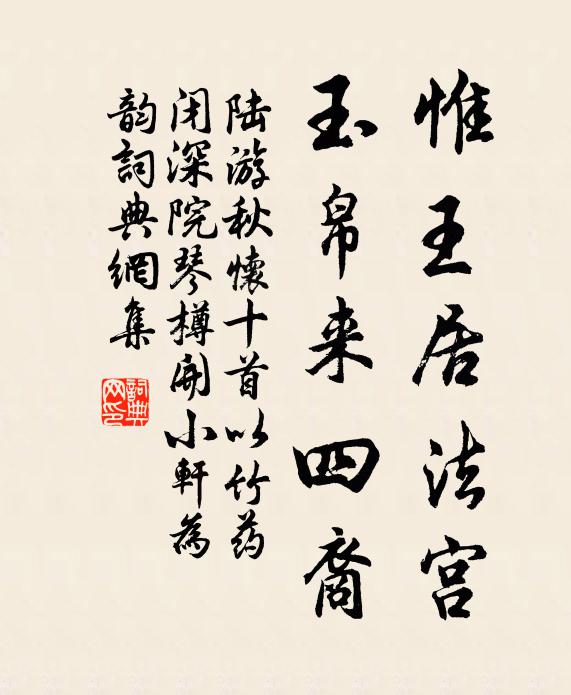 惟王居法宫
玉帛来四裔
陆游秋懷十首以竹药
闭深院琴樽開小軒為
韵詞典網集
詞典
网印